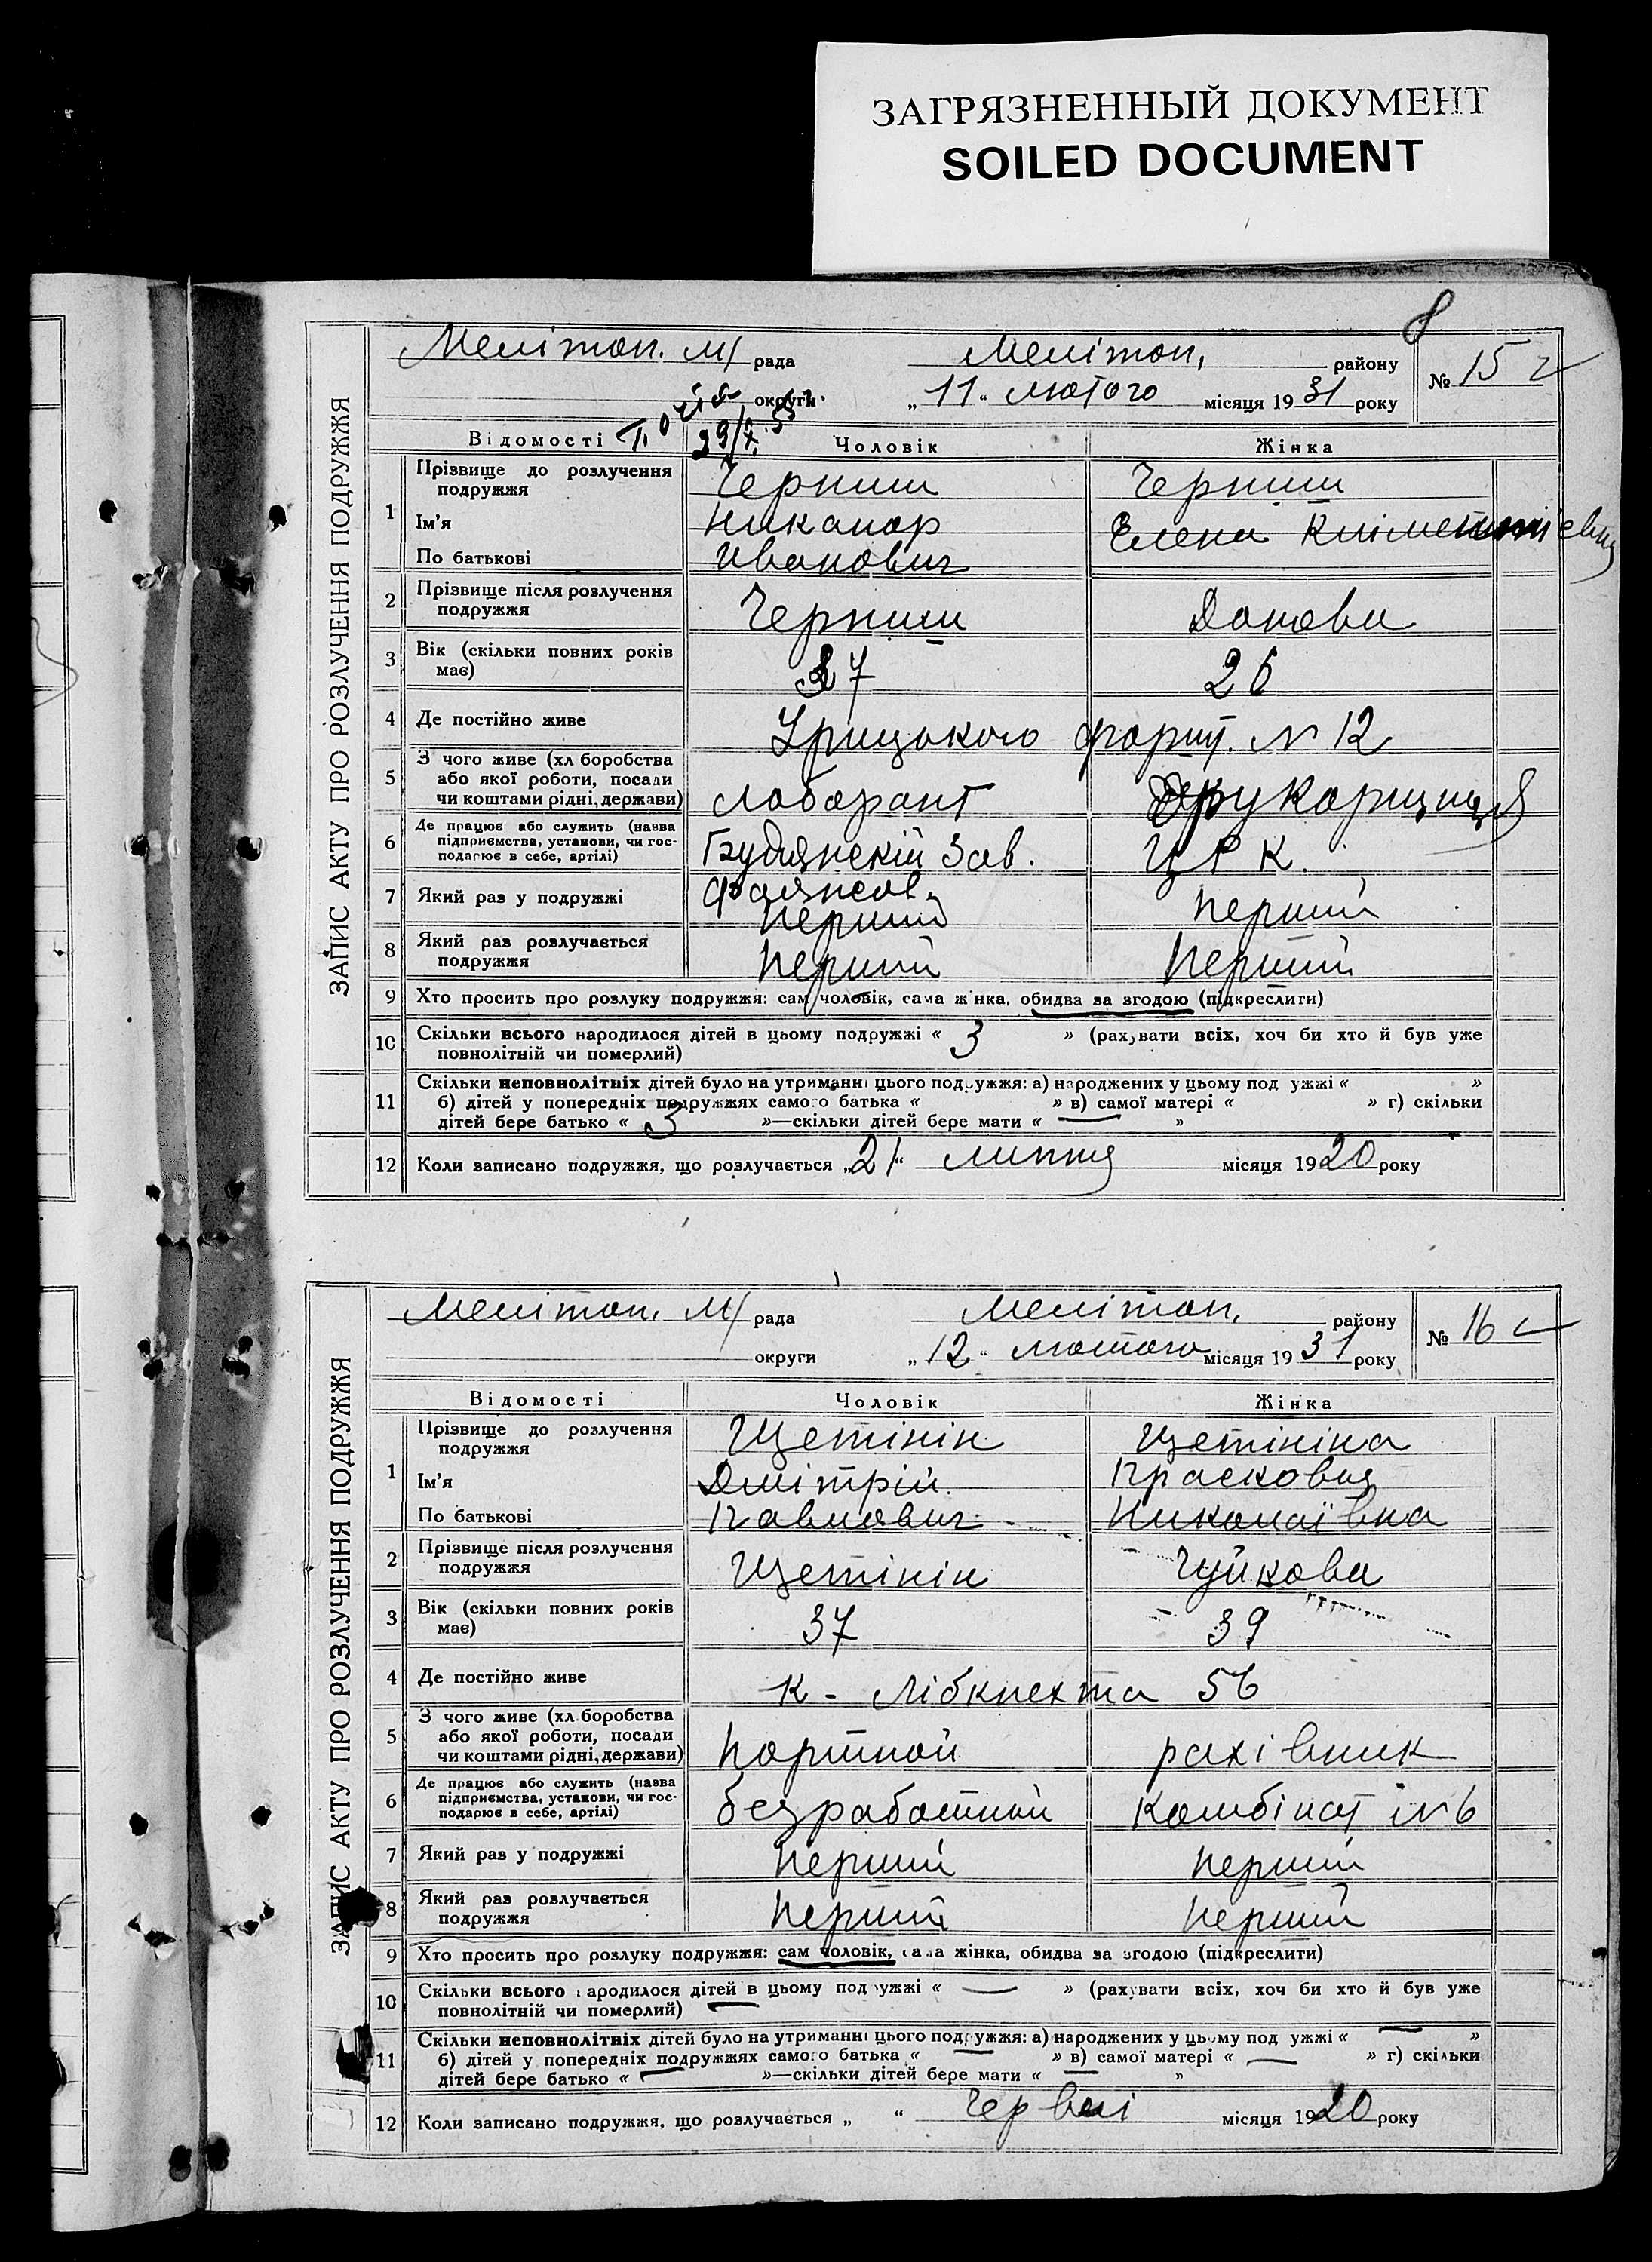 ЗАГРЯЗНЕННЫЙ ДОКУМЕНТ
SOILED DOCUMENT
8
ЗАПИС АКТУ ПРО РОЗЛУЧЕННЯ ПОДРУЖЖЯ
Мелітоп. м/ рада Мелітоп, району № 15
округи „11“ лютого місяця 1931 року
29/X
Відомості Чоловік Жінка
1 Прізвище до розлучення подружжя Черниш Черниш
Ім'я Никанор Елена
По батькові Иванович
2 Прізвище після розлучення подружжя Черниш
3 Вік (скільки повних років має) 37 26
4 Де постійно живе Урицького № 12
5 З чого живе (хл боробства або якої роботи, посади чи коштами рідні, держави) лаборант друкарщиця
6 Де працює або служить (назва підприємства, установи, чи господарює в себе, артілі) Будянскій Зав. фаянсов. ЦРК.
7 Який раз у подружжі перший перший
8 Який раз розлучається подружжя перший перший
9 Хто просить про розлуку подружжя: сам чоловік, сама жінка, обидва за згодою (підкреслити)
10 Скільки всього народилося дітей в цьому подружжі « 3 » (рахувати всіх, хоч би хто й був уже
повнолітній чи померлий)
11 Скільки неповнолітніх дітей було на утриманні цього подружжя: а) народжених у цьому под ужжі « »
б) дітей у попередніх подружжях самого батька « » в) самої матері « » г) скільки
дітей бере батько « 3 »—скільки дітей бере мати « — »
12 Коли записано подружжя, що розлучається „21“ липня місяця 1920 року
ЗАПИС АКТУ ПРО РОЗЛУЧЕННЯ ПОДРУЖЖЯ
Мелітоп. м/ рада Мелітоп. району № 16
округи „12“ лютого місяця 1931 року
Відомості Чоловік Жінка
1 Прізвище до розлучення подружжя Щетінін Щетініна
Ім'я Дмітрій Прасковия
По батькові Павлович Николаївна
2 Прізвище після розлучення подружжя Щетінін Чуйкова
3 Вік (скільки повних років має) 37 39
4 Де постійно живе К-Лібкнехта 56
5 З чого живе (хл.боробства або якої роботи, посади чи коштами рідні, держави) портной рахівник
6 Де працює або служить (назва підприємства, установи, чи господарює в себе, артілі) безработний Комбінат № 6
7 Який раз у подружжі перший перший
8 Який раз розлучається подружжя перший перший
9 Хто просить про розлуку подружжя: сам чоловік, сама жінка, обидва за згодою (підкреслити)
10 Скільки всього народилося дітей в цьому подружжі « — » (рахувати всіх, хоч би хто й був уже
повнолітній чи померлий)
11 Скільки неповнолітніх дітей було на утриманні цього подружжя: а) народжених у цьому под ужжі « — »
б) дітей у попередніх подружжях самого батька « — » в) самої матері « — » г) скільки
дітей бере батько « — »—скільки дітей бере мати « — »
12 Коли записано подружжя, що розлучається „ “ Червні місяця 1920 року